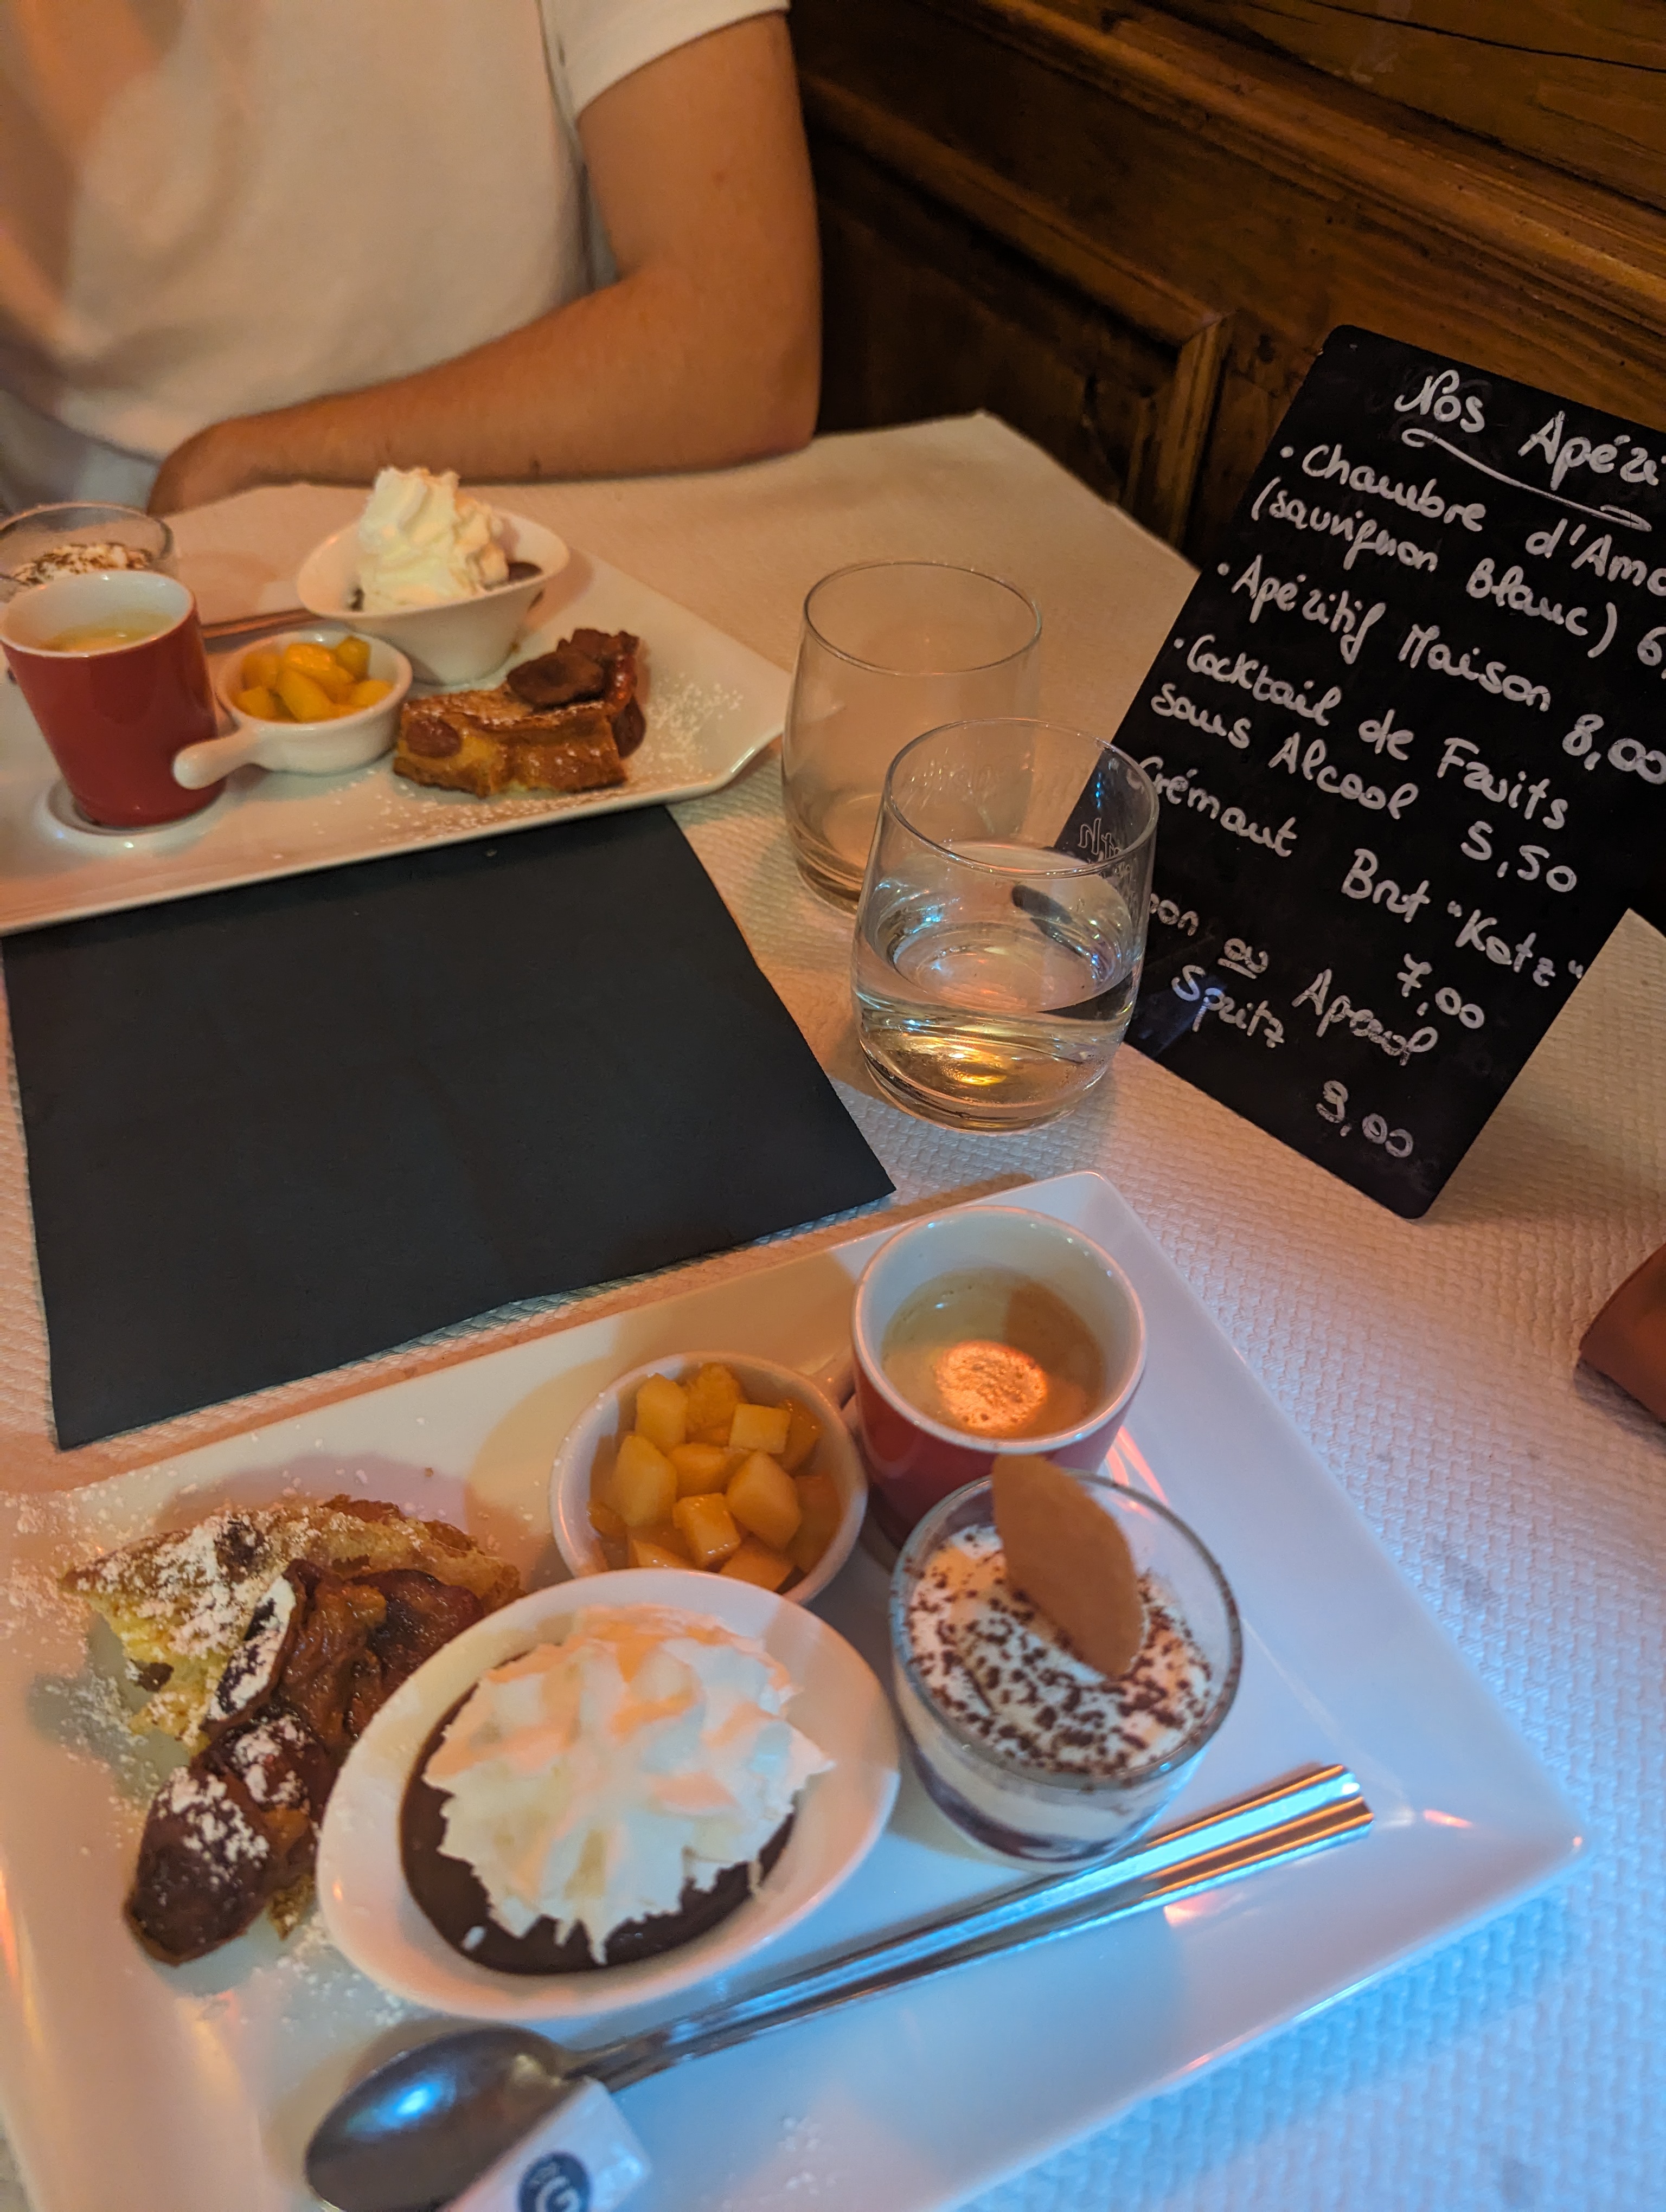 Nos Apéri
• Chambre d'Amo
(sauvignon Blanc) 6,
• Apéritif Maison 8,00
• Cocktail de Fruits
sans Alcool 5,50
Crémant Brut "Kotz"
7,00
ou Aperol
Spritz